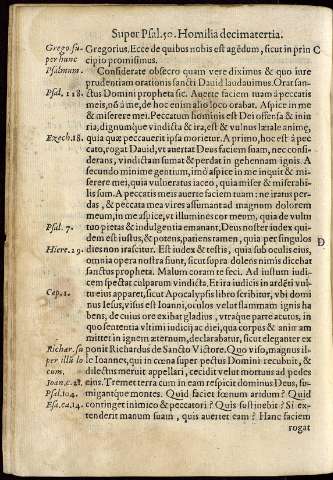 Super Psal. 50. Homilia decimatertia.
Grego. su-
per hunc
Psalmum.
Gregorius. Ecce de quibus nobis est agēdum, sicut in prin
cipio promisimus.
Considerate obsecro quam vere diximus & quo iure
prudentiam orationis sancti Dauid laudauimus. Orat san-
Psal. 118.
ctus Domini propheta sic. Auerte faciem tuam à peccatis
meis, nō à me, de hoc enim alio loco orabat. Aspice in me
& miserere mei. Peccatum hominis est Dei offensa & iniu
ria, dignumque vindicta & ira, est & vulnus letale animę,
Ezech. 18.
quia quæ peccauerit ipsa morietur. A primo, hoc est à pec
cato, rogat Dauid, vt auertat Deus faciem suam, nec consi-
derans, vindictam sumat & perdat in gehennam ignis. A
secundo minime gentium, imò aspice in me inquit & mi-
serere mei, quia vulneratus iaceo, quia miser & miserabi-
lis sum. A peccatis meis auerte faciem tuam: ne iratus per-
das, & peccata mea vires assumant ad magnum dolorem
meum, in me aspice, vt illumines cor meum, quia de vultu
Psal. 7.
tuo pietas & indulgentia emanant. Deus noster iudex qui-
dem est iustus, & potens, patiens tamen, quia per singulos
D
Hiere. 29.
dies non irascitur. Est iudex & testis, quia sub oculis eius,
omnia opera nostra sunt, sicut supra dolens nimis dicebat
sanctus propheta. Malum coram te feci. Ad iustum iudi-
cem spectat culparum vindicta. Et ira iudicis in ardēti vul-
Cap. 1.
tu eius apparet, sicut Apocalypsis libro scribitur, vbi domi
nus Iesus, visus est Ioanni, oculos velut flammam ignis ha
bens, de cuius ore exibat gladius, vtraque parte acutus, in
quo sententia vltimi iudicij ac diei, qua corpus & animam
mittet in ignem æternum, declarabatur, sicut eleganter ex
Richar. su
per illū lo
cum.
ponit Richardus de Sancto Victore. Quo viso, magnus il-
le Ioannes, qui in cœna super pectus Domini recubuit, &
dilectus meruit appellari, cecidit velut mortuus ad pedes
Ioan. c. 21.
eius. Tremet terra cum in eam respicit dominus Deus, fu-
Psal. 104.
migantque montes. Quid faciet fœnum aridum? Quid
Esa. ca. 14.
continget inimico & peccatori? Quis sustinebit? Si ex-
tenderit manum suam, quis auertet eam? Hanc faciem
rogat